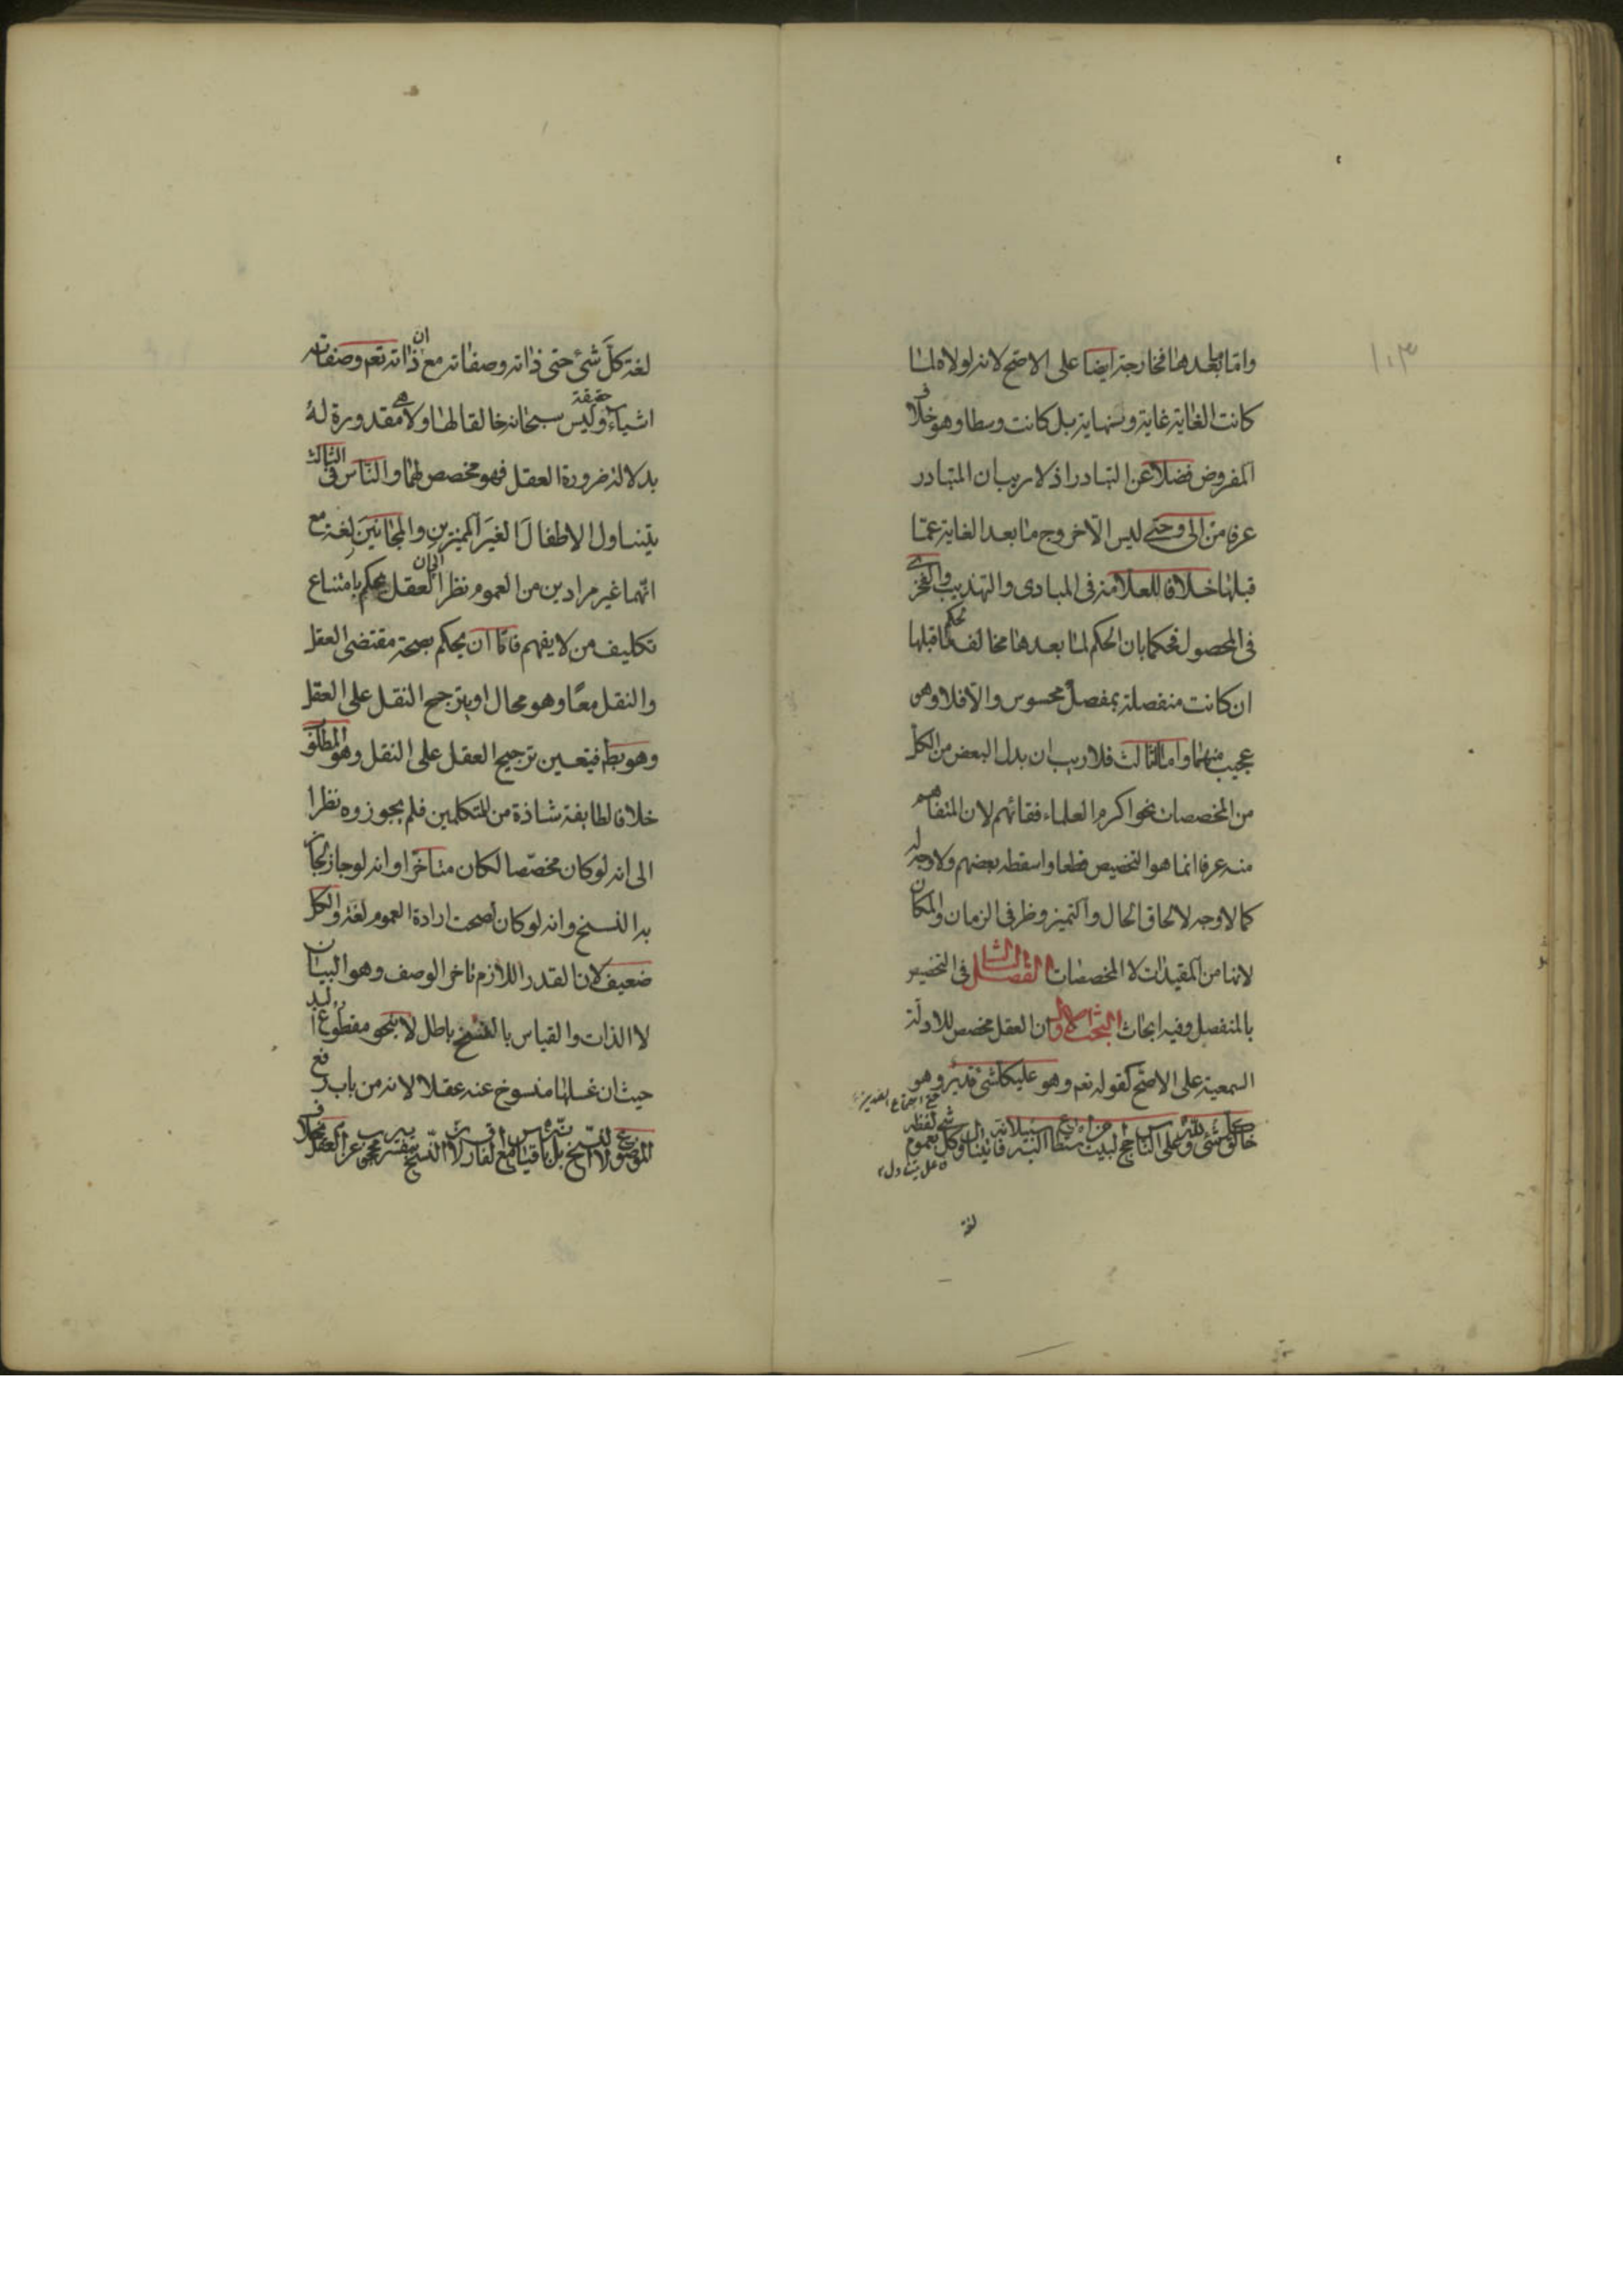 ١٠٣
واما ما بعدها فخارجة ايضا على الاصح لانه لولاه لما
كانت الغاية غاية ونهاية بل كانت وسطا وهو خلاف
المفروض فضلا عن التبادر اذ لا ريب ان المتبادر
عرفا من الى وحتى ليس الا خروج ما بعد الغاية عما
قبلها خلافا للعلامة فى المبادى والتهذيب والفخرى
فى المحصول فحكما بان الحكم لما بعدها مخالف لحكم ما قبلها
ان كانت منفصلة بمفصل محسوس والا فلا وهو
عجيب منهما واما الثالث فلا ريب ان بدل البعض من الكل
من المخصصات نحو اكرم العلماء فقهائهم لان المتفاهم
منه عرفا انما هو التخصيص قطعا واسقطه بعضهم ولا وجه له
كما لا وجه لالحاق الحال والتميز وظرفى الزمان والمكان
لانها من المقيدات لا المخصصات الفصل الثالث فى التخصيص
بالمنفصل وفيه ابحاث البحث الاول ان العقل مخصص للادلة
السمعية على الاصح كقوله تعم وهو على كل شئ قدير وهو
خالق كل شئ ولله على الناس حج البيت من استطاع اليه سبيلا فانه يتناول بعموم
لغة
لغة كل شئ حتى ذاته وصفاته مع ان ذاته تعم وصفاته
اشياء حقيقة وليس سبحانه خالقا لها ولا هى مقدورة له
بدلالة ضرورة العقل فهو مخصص لهما والناس فى الثالث
يتناول الاطفال الغير المميزين والمجانين لغة مع
انهما غير مرادين من العموم نظرا الى ان العقل يحكم بامتناع
تكليف من لا يفهم فاما ان يحكم بصحة مقتضى العقل
والنقل معا وهو محال او بترجيح النقل على العقل
وهو بط فيتعين ترجيح العقل على النقل وهو المطلوب
خلافا لطايفة شاذة من المتكلمين فلم يجوزوه نظرا
الى انه لو كان مخصصا لكان متاخرا وانه لو جاز لجاز
به النسخ وانه لو كان لصحت ارادة العموم لغة والكل
ضعيف لان القدر اللازم تاخر الوصف وهو البيان
لا الذات والقياس بالنسخ باطل لا بنحو مقطوع اليد
حيث ان غسلها منسوخ عنه عقلا لانه من باب رفع
الموضوع لا النسخ بل بانه قياس مع الفارق لان النسخ